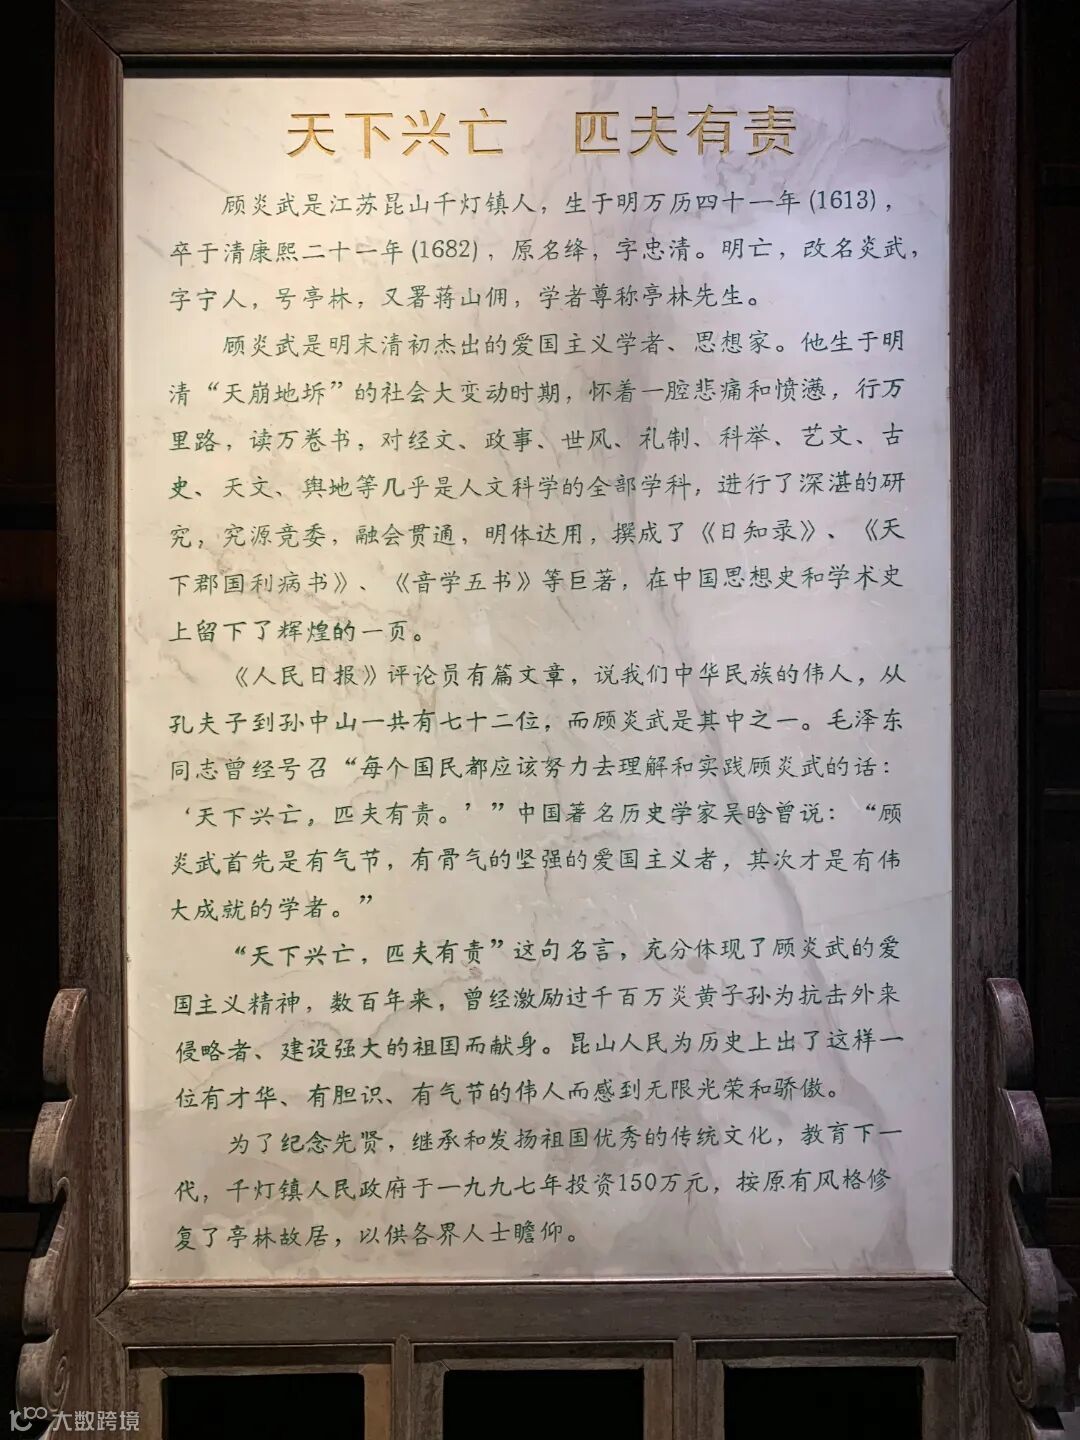 天下兴亡　匹夫有责
顾炎武是江苏昆山千灯镇人，生于明万历四十一年(1613)，
卒于清康熙二十一年(1682)，原名绛，字忠清。明亡，改名炎武，
字宁人，号亭林，又署蒋山佣，学者尊称亭林先生。
顾炎武是明末清初杰出的爱国主义学者、思想家。他生于明
清“天崩地坼”的社会大变动时期，怀着一腔悲痛和愤懑，行万
里路，读万卷书，对经文、政事、世风、礼制、科举、艺文、古
史、天文、舆地等几乎是人文科学的全部学科，进行了深湛的研
究，究源竞委，融会贯通，明体达用，撰成了《日知录》、《天
下郡国利病书》、《音学五书》等巨著，在中国思想史和学术史
上留下了辉煌的一页。
《人民日报》评论员有篇文章，说我们中华民族的伟人，从
孔夫子到孙中山一共有七十二位，而顾炎武是其中之一。毛泽东
同志曾经号召“每个国民都应该努力去理解和实践顾炎武的话：
‘天下兴亡，匹夫有责。’”中国著名历史学家吴晗曾说：“顾
炎武首先是有气节，有骨气的坚强的爱国主义者，其次才是有伟
大成就的学者。”
“天下兴亡，匹夫有责”这句名言，充分体现了顾炎武的爱
国主义精神，数百年来，曾经激励过千百万炎黄子孙为抗击外来
侵略者、建设强大的祖国而献身。昆山人民为历史上出了这样一
位有才华、有胆识、有气节的伟人而感到无限光荣和骄傲。
为了纪念先贤，继承和发扬祖国优秀的传统文化，教育下一
代，千灯镇人民政府于一九九七年投资150万元，按原有风格修
复了亭林故居，以供各界人士瞻仰。
大数跨境